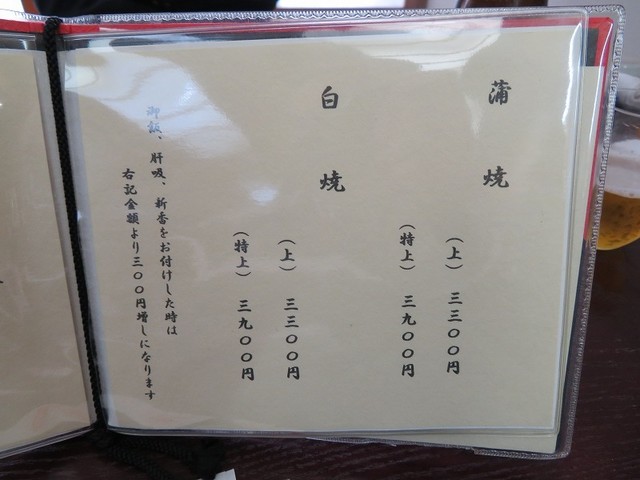 蒲焼
（上） 三三〇〇円
（特上） 三九〇〇円
白焼
（上） 三三〇〇円
（特上） 三九〇〇円
御飯、肝吸、新香をお付けした時は
右記金額より三〇〇円増しになります